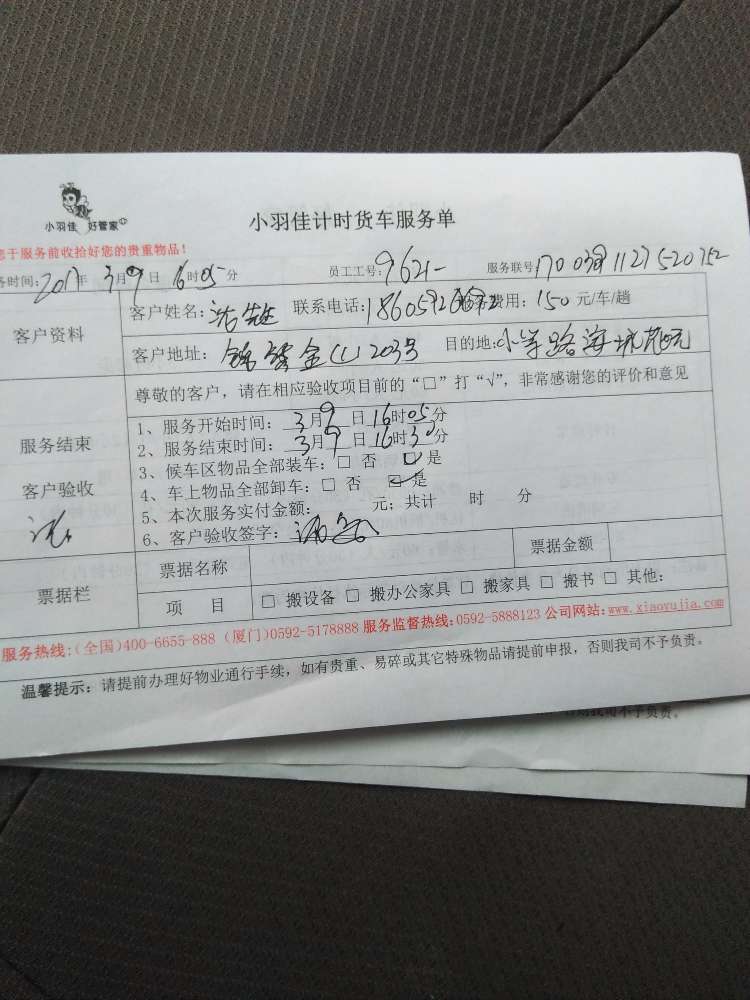 小羽佳 好管家
小羽佳计时货车服务单
您于服务前收拾好您的贵重物品！
务时间: 2017年 3月9日 16时05分 员工工号: 服务联号
客户资料
客户姓名: 联系电话: 费用: 150 元/车/趟
客户地址: 203号 目的地:
尊敬的客户，请在相应验收项目前的“□”打“√”，非常感谢您的评价和意见
服务结束
客户验收
1、服务开始时间: 3月9日16时05分
2、服务结束时间: 3月9日16时30分
3、候车区物品全部装车: □ 否 ☑ 是
4、车上物品全部卸车: □ 否 ☑ 是
5、本次服务实付金额: 元; 共计 时 分
6、客户验收签字:
票据栏
票据名称 票据金额
项 目 □ 搬设备 □ 搬办公家具 □ 搬家具 □ 搬书 □ 其他:
服务热线:(全国)400-6655-888 (厦门)0592-5178888 服务监督热线:0592-5888123 公司网站:www.xiaoyujia.com
温馨提示: 请提前办理好物业通行手续，如有贵重、易碎或其它特殊物品请提前申报，否则我司不予负责。
我司不予负责。